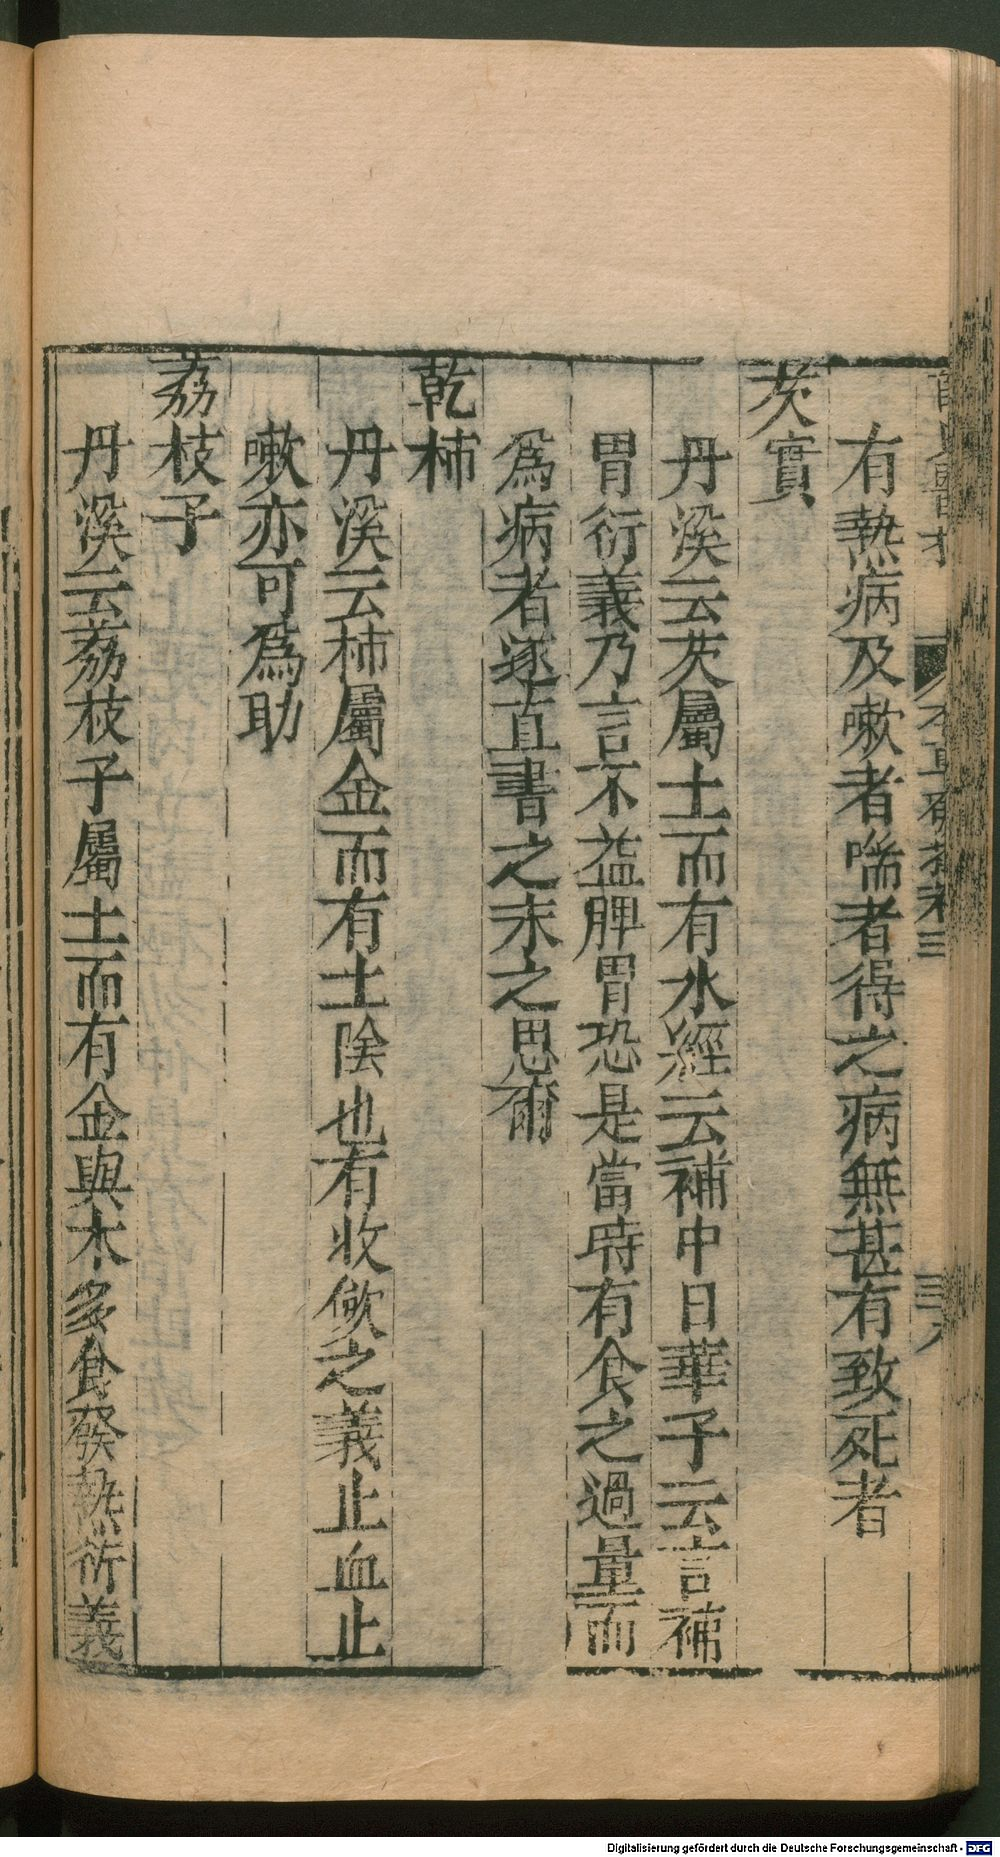 有熱病及嗽者喘者得之病無甚有致死者
芡實
丹溪云芡屬土而有水經云補中日華子云言補
胃衍義乃言不益脾胃恐是當時有食之過量而
為病者遂直書之未之思爾
乾柿
丹溪云柿屬金而有土陰也有收斂之義止血止
嗽亦可為助
荔枝子
丹溪云荔枝子屬土而有金與木多食發熱衍義
Digitalisierung gefördert durch die Deutsche Forschungsgemeinschaft - DFG